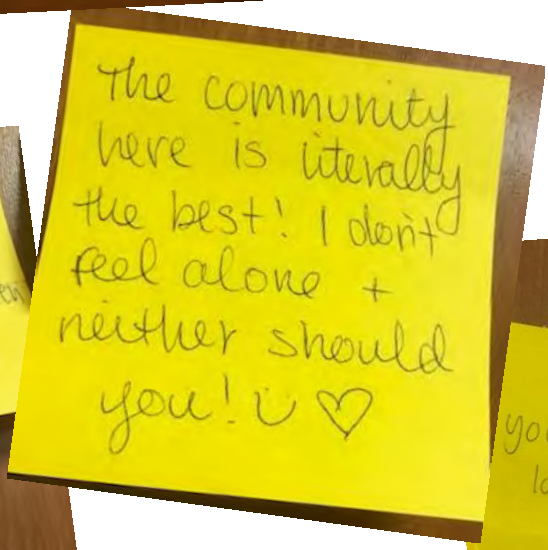 The community
here is literally
the best! I don't
feel alone +
neither should
you! ü ♡
you